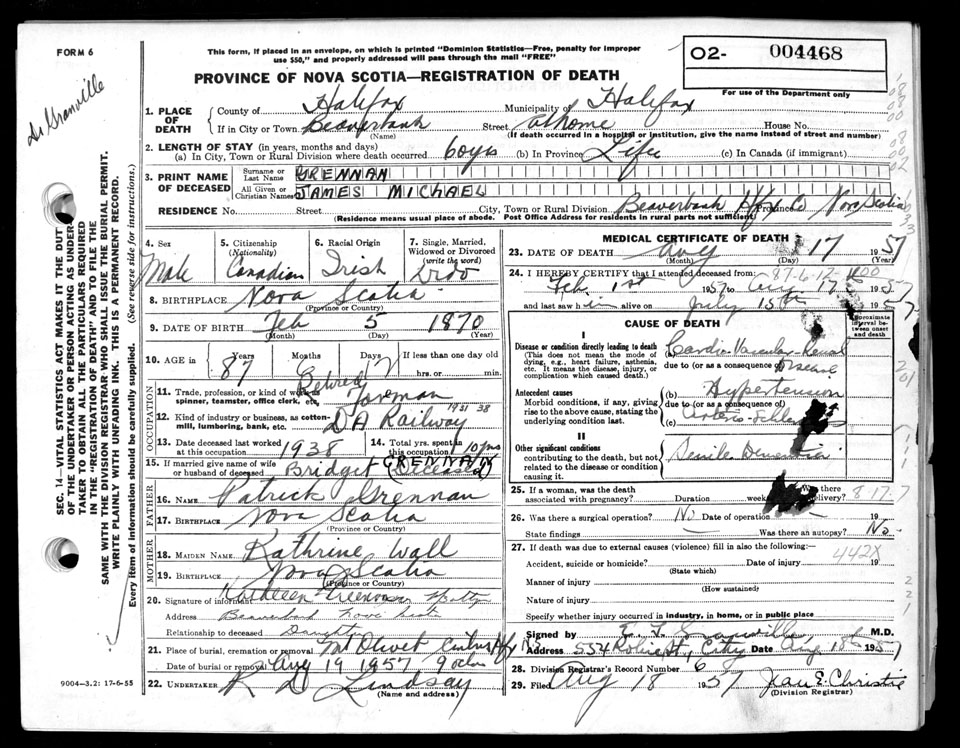 FORM 6
Dr Granville
This form, if placed in an envelope, on which is printed "Dominion Statistics—Free, penalty for improper
use $50," and properly addressed will pass through the mail "FREE"
O2- 004468
For use of the Department only
PROVINCE OF NOVA SCOTIA—REGISTRATION OF DEATH
1. PLACE OF DEATH
County of Halifax Municipality of Halifax
If in City or Town Beaverbank Street at home House No.
(Name) (If death occurred in a hospital or institution, give the name instead of street and number)
2. LENGTH OF STAY (in years, months and days)
(a) In City, Town or Rural Division where death occurred 60 yrs (b) In Province Life (c) In Canada (if immigrant)
3. PRINT NAME OF DECEASED
Surname or Last Name GRENNAN
All Given or Christian Names JAMES MICHAEL
RESIDENCE No. Street City, Town or Rural Division Beaverbank Hfx Co Province Nova Scotia
(Residence means usual place of abode. Post Office Address for residents in rural parts not sufficient)
4. Sex Male
5. Citizenship (Nationality) Canadian
6. Racial Origin Irish
7. Single, Married, Widowed or Divorced (write the word) Wido
8. BIRTHPLACE Nova Scotia
(Province or Country)
9. DATE OF BIRTH Feb 5 1870
(Month) (Day) (Year)
10. AGE in 87 Years 6 Months 12 Days If less than one day old
hrs. or min.
OCCUPATION
11. Trade, profession, or kind of work as spinner, teamster, office clerk, etc. Retired Foreman
12. Kind of industry or business, as cotton-mill, lumbering, bank, etc. DA Railway 1921 38
13. Date deceased last worked at this occupation 1938
14. Total yrs. spent in this occupation 10 yrs
15. If married give name of wife or husband of deceased Bridget (GRENNAN) Deceased
FATHER
16. NAME Patrick Grennan
17. BIRTHPLACE Nova Scotia
(Province or Country)
MOTHER
18. MAIDEN NAME Kathrine Wall
19. BIRTHPLACE Nova Scotia
(Province or Country)
20. Signature of informant Kathleen
Address Beaverbank Nova Scotia
Relationship to deceased Daughter
21. Place of burial, cremation or removal Mt Olivet Hfx N.S
Date of burial or removal Aug 19 1957
22. UNDERTAKER K D Lindsay
(Name and address)
9004—3.2: 17-6-55
SEC. 14—VITAL STATISTICS ACT MAKES IT THE DUTY
OF THE UNDERTAKER OR PERSON ACTING AS UNDER-
TAKER TO OBTAIN ALL THE PARTICULARS REQUIRED
IN THE "REGISTRATION OF DEATH" AND TO FILE THE
SAME WITH THE DIVISION REGISTRAR WHO SHALL ISSUE THE BURIAL PERMIT.
WRITE PLAINLY WITH UNFADING INK. THIS IS A PERMANENT RECORD.
Every item of information should be carefully supplied. (See reverse side for instructions.)
MEDICAL CERTIFICATE OF DEATH
23. DATE OF DEATH Aug 17 1957
(Month) (Day) (Year)
24. I HEREBY CERTIFY that I attended deceased from: 87-6-12
Feb 1st 1957 to Aug 17th 1957
and last saw him alive on July 15th 1957
CAUSE OF DEATH
Approximate interval between onset and death
I
Disease or condition directly leading to death
(This does not mean the mode of dying, e.g., heart failure, asthenia, etc. It means the disease, injury, or complication which caused death.)
(a) Cardio-Vascular-Renal Disease
due to (or as a consequence of)
Antecedent causes
Morbid conditions, if any, giving rise to the above cause, stating the underlying condition last
(b) Hypertension
due to (or as a consequence of)
(c) Arterio-
II
Other significant conditions
contributing to the death, but not related to the disease or condition causing it.
Senile Dementia
25. If a woman, was the death associated with pregnancy? Duration weeks Was there delivery? 8-17-7
26. Was there a surgical operation? No Date of operation 19
State findings Was there an autopsy? No
27. If death was due to external causes (violence) fill in also the following:—
442X
Accident, suicide or homicide? Date of injury 19
(State which)
Manner of injury
(How sustained)
Nature of injury
Specify whether injury occurred in industry, in home, or in public place
Signed by Granville M.D.
Address 554 Robie St, City Date Aug 18 1957
28. Division Registrar's Record Number 6
29. Filed Aug 18 1957 Jean E. Christie
(Division Registrar)